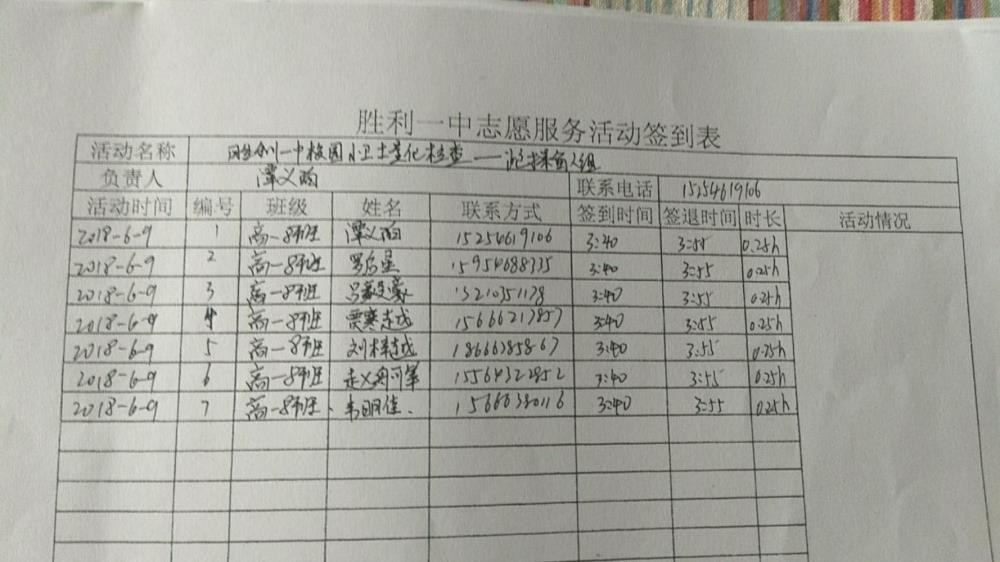 胜利一中志愿服务活动签到表
活动名称 胜利一中校园小卫士量化检查
负责人 潭义昀 联系电话 15254619106
活动时间 编号 班级 姓名 联系方式 签到时间 签退时间 时长 活动情况
2018-6-9 1 高一8班 潭义昀 15254619106 3:40 3:55 0.25h
2018-6-9 2 高一8班 15954688335 3:40 3:55 0.25h
2018-6-9 3 高一8班 3:40 3:55 0.25h
2018-6-9 4 高一8班 15666217857 3:40 3:55 0.25h
2018-6-9 5 高一8班 18666385867 3:40 3:55 0.25h
2018-6-9 6 高一8班 15564322852 3:40 3:55 0.25h
2018-6-9 7 高一8班 韦明佳 15666380116 3:40 3:55 0.25h